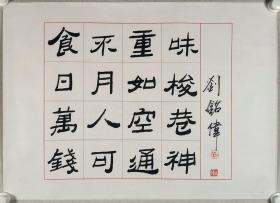 食不重味
日月如梭
萬人空巷
錢可通神
劉銘偉